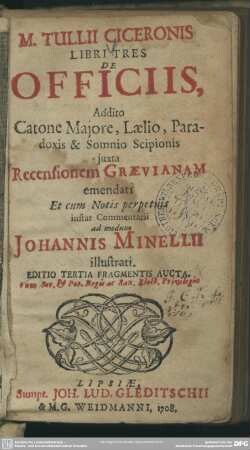 M. TULLII CICERONIS
LIBRI TRES
DE
OFFICIIS,
Addito
Catone Majore, Lælio, Para-
doxis & Somnio Scipionis
juxta
Recensionem GRÆVIANAM
emendati
Et cum Notis perpetuis
instar Commentarii
ad modum
JOHANNIS MINELLII
illustrati.
EDITIO TERTIA FRAGMENTIS AUCTA.
Cum Sac. & Pol. Regis ac Sax. Elect. Privilegio
LIPSIÆ,
Sumpt. JOH. LUD. GLEDITSCHII
& M. G. WEIDMANNI, 1708.